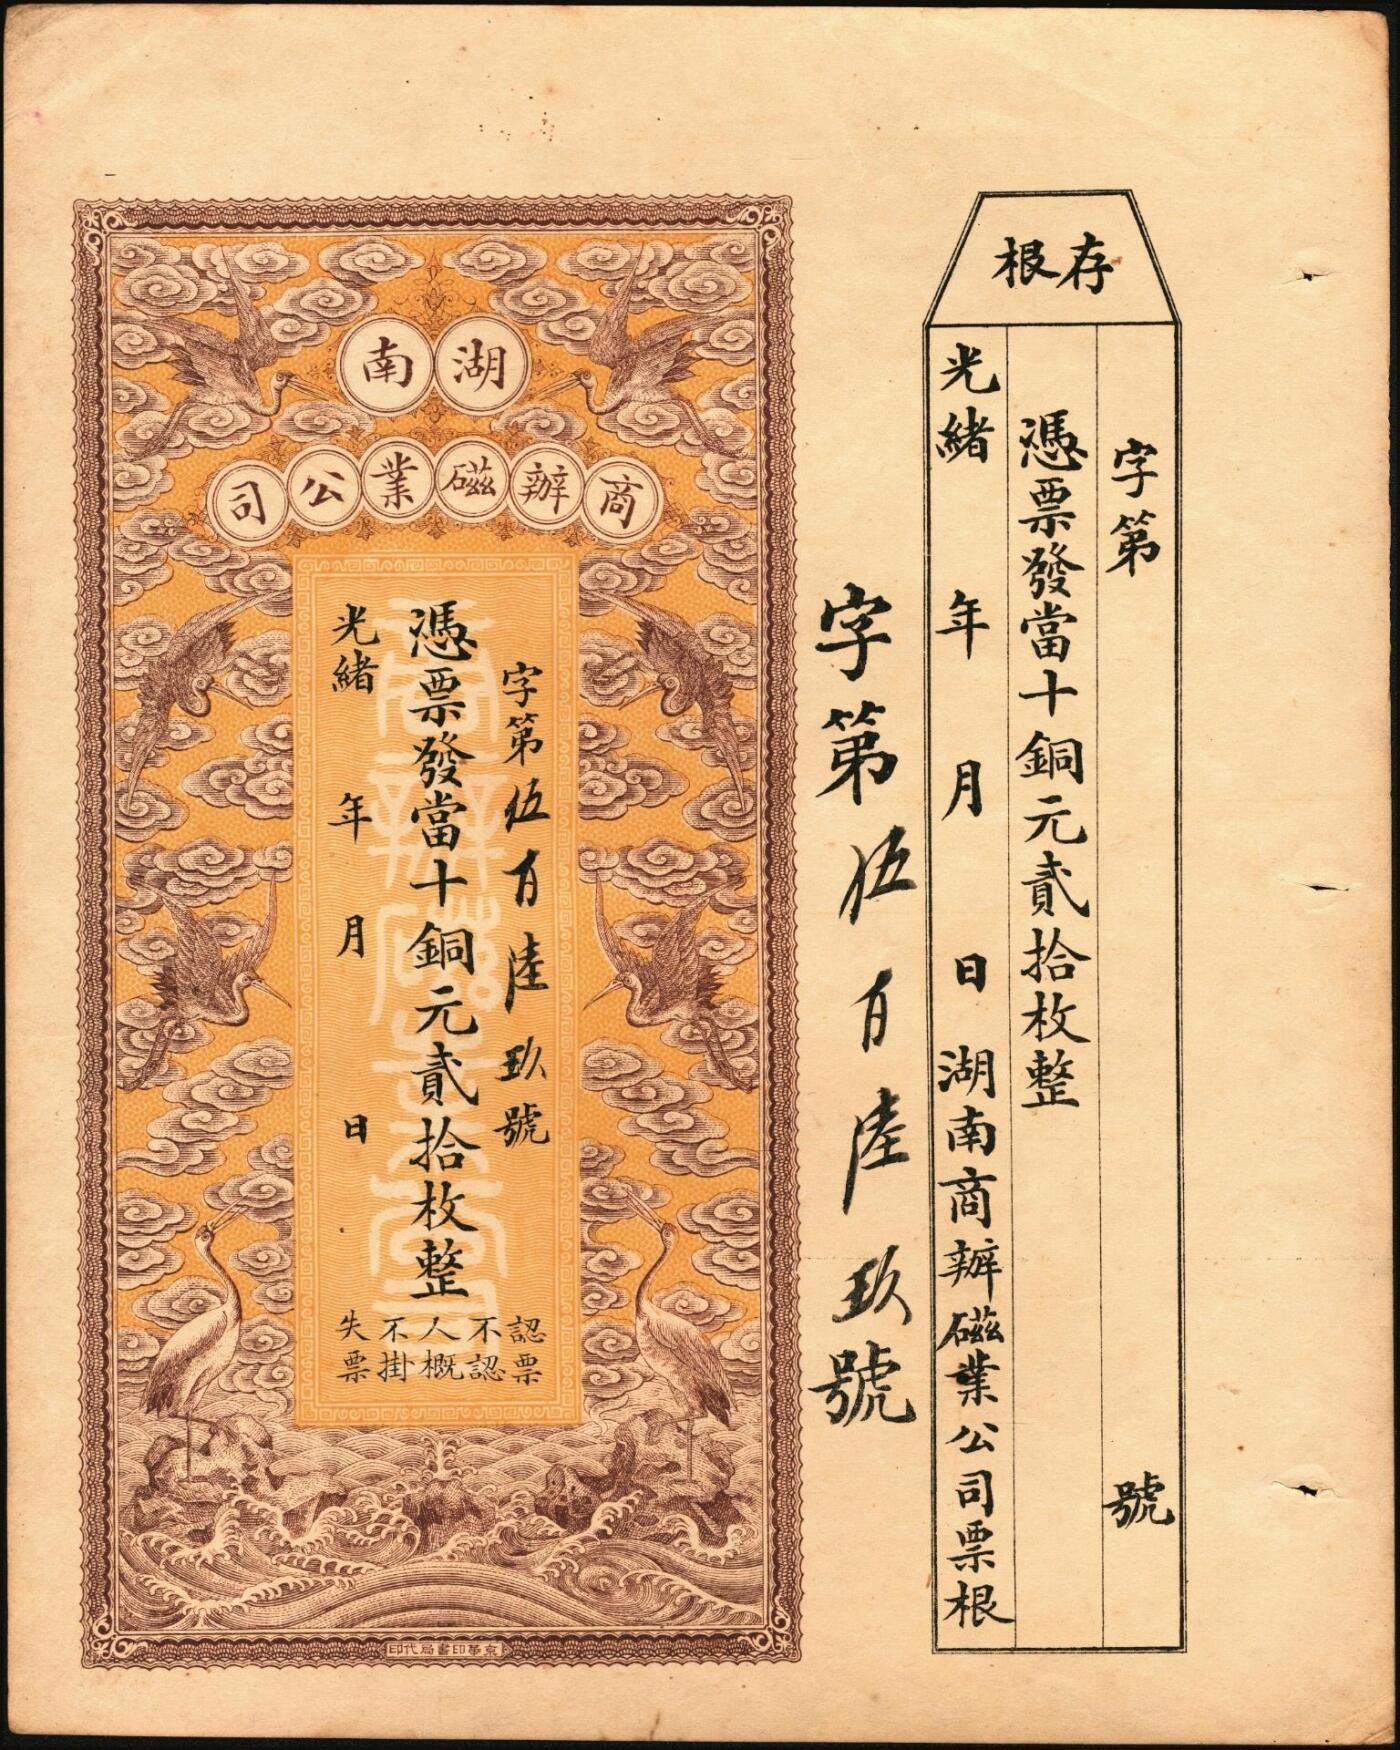 存根
字第 號
憑票發當十銅元貳拾枚整
光緒 年 月 日湖南商辦磁業公司票根
字第伍百陸玖號
湖南
商辦磁業公司
字第伍百陸玖號
憑票發當十銅元貳拾枚整
光緒 年 月 日
認票
不認
人概
不掛
失票
京華印書局代印